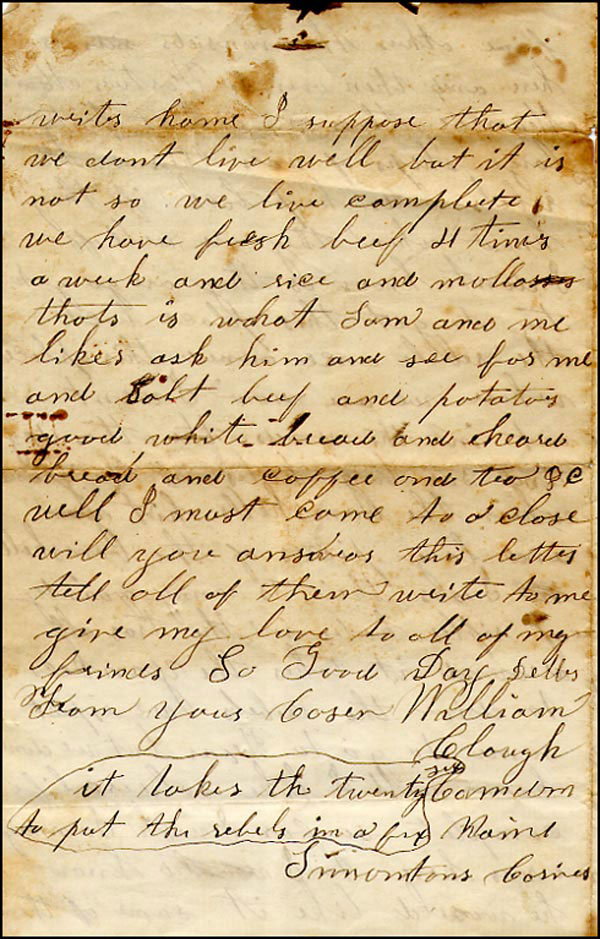 writs home I suppose that
we dont live well but it is
not so we live complete
we have fresh beef 4 times
a week and rice and mollases
thats is what Sam and me
likes ask him and see for me
and Salt beef and potatos
good white bread and heard
bread and coffee and tea &C
well I must come to a close
will you answer this letter
tell all of them write to me
give my love to all of my
frinds So Good Day
from your Cosen William
Clough
it takes th twenty six
to put the rebels in a fix
Camden
Maine
Simontons Corner